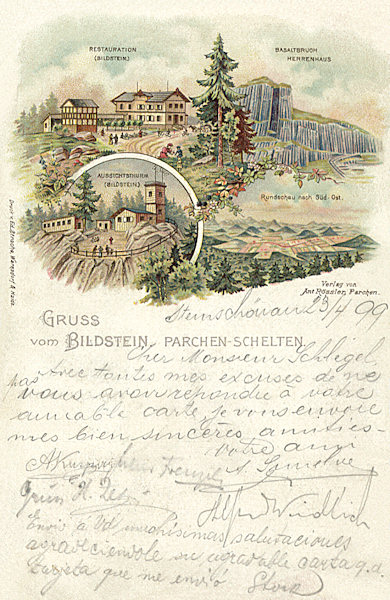 RESTAURATION
(BILDSTEIN)
BASALTBRUCH
HERRENHAUS
AUSSICHTSTHURM
(BILDSTEIN)
Rundschau nach Süd-Ost.
Verlag von
Ant. Rössler, Parchen.
Steinschönau 23/4 99
GRUSS
vom BILDSTEIN, PARCHEN-SCHELTEN.
Cher Monsieur Schlegel,
Avec toutes mes excuses de ne
pas vous avoir répondu à votre
aimable carte je vous envoie
mes bien sincères amitiés
votre ami
Envio à Vd muchísimas salutaciones
agradeciendole su agradable carta q.d.
tarjeta que me envió